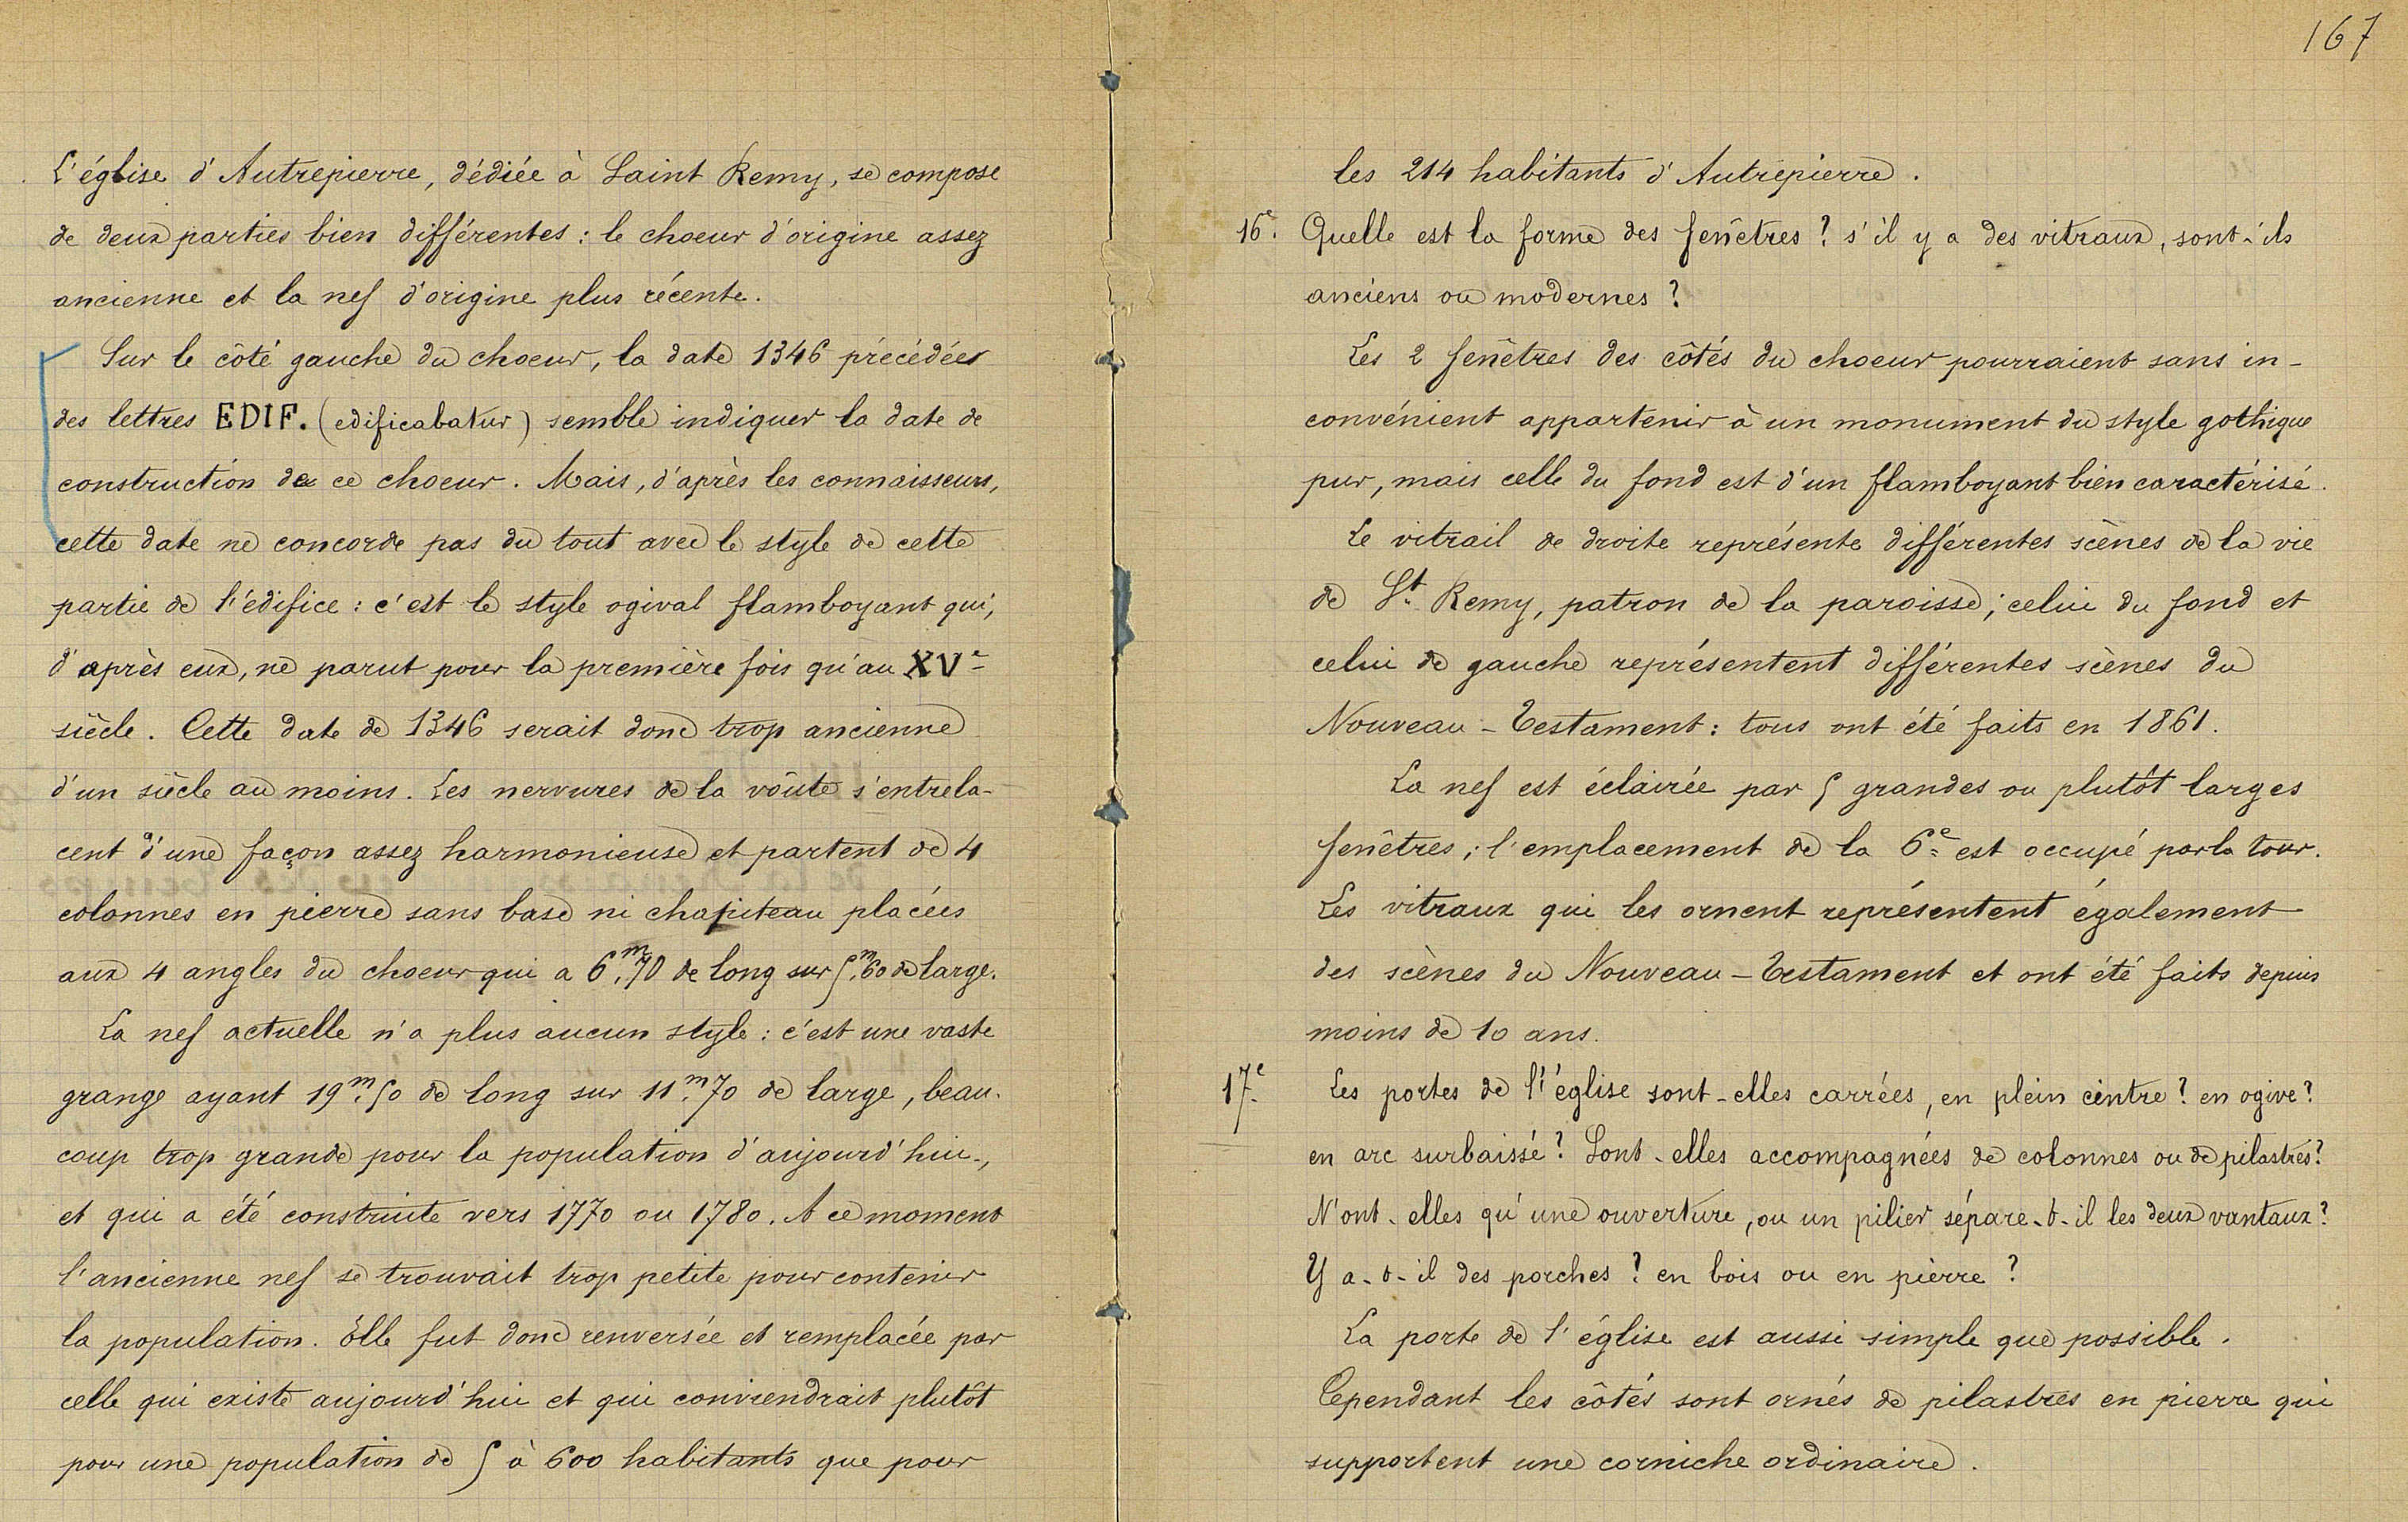 L'église d'Autrepierre, dédiée à Saint Remy, se compose
de deux parties bien différentes : le choeur d'origine assez
ancienne et la nef d'origine plus récente.
Sur le côté gauche du choeur, la date 1346 précédées
des lettres EDIF. (edificabatur) semble indiquer la date de
construction de ce choeur. Mais, d'après les connaisseurs,
cette date ne concorde pas du tout avec le style de cette
partie de l'édifice : c'est le style ogival flamboyant qui,
d'après eux, ne parut pour la première fois qu'au XVe
siècle. Cette date de 1346 serait donc trop ancienne
d'un siècle au moins. Les nervures de la voûte s'entrela-
cent d'une façon assez harmonieuse et partent de 4
colonnes en pierre sans base ni chapiteau placées
aux 4 angles du choeur qui a 6m,70 de long sur 5m,60 de large.
La nef actuelle n'a plus aucun style : c'est une vaste
grange ayant 19m,50 de long sur 11m,70 de large, beau-
coup trop grande pour la population d'aujourd'hui,
et qui a été construite vers 1770 ou 1780. A ce moment
l'ancienne nef se trouvait trop petite pour contenir
la population. Elle fut donc renversée et remplacée par
celle qui existe aujourd'hui et qui conviendrait plutôt
pour une population de 5 à 600 habitants que pour
167
les 214 habitants d'Autrepierre.
16e. Quelle est la forme des fenêtres ? s'il y a des vitraux, sont-ils
anciens ou modernes ?
Les 2 fenêtres des côtés du choeur pourraient sans in-
convénient appartenir à un monument du style gothique
pur, mais celle du fond est d'un flamboyant bien caractérisé.
Le vitrail de droite représente différentes scènes de la vie
de St. Remy, patron de la paroisse ; celui du fond et
celui de gauche représentent différentes scènes du
Nouveau-Testament : tous ont été faits en 1861.
La nef est éclairée par 5 grandes ou plutôt larges
fenêtres ; l'emplacement de la 6e est occupé par la tour.
Les vitraux qui les ornent représentent également
des scènes du Nouveau-Testament et ont été faits depuis
moins de 10 ans.
17e Les portes de l'église sont-elles carrées, en plein cintre ? en ogive ?
en arc surbaissé ? Sont-elles accompagnées de colonnes ou de pilastres ?
N'ont-elles qu'une ouverture, ou un pilier sépare-t-il les deux vantaux ?
Y a-t-il des porches ? en bois ou en pierre ?
La porte de l'église est aussi simple que possible.
Cependant les côtés sont ornés de pilastres en pierre qui
supportent une corniche ordinaire.